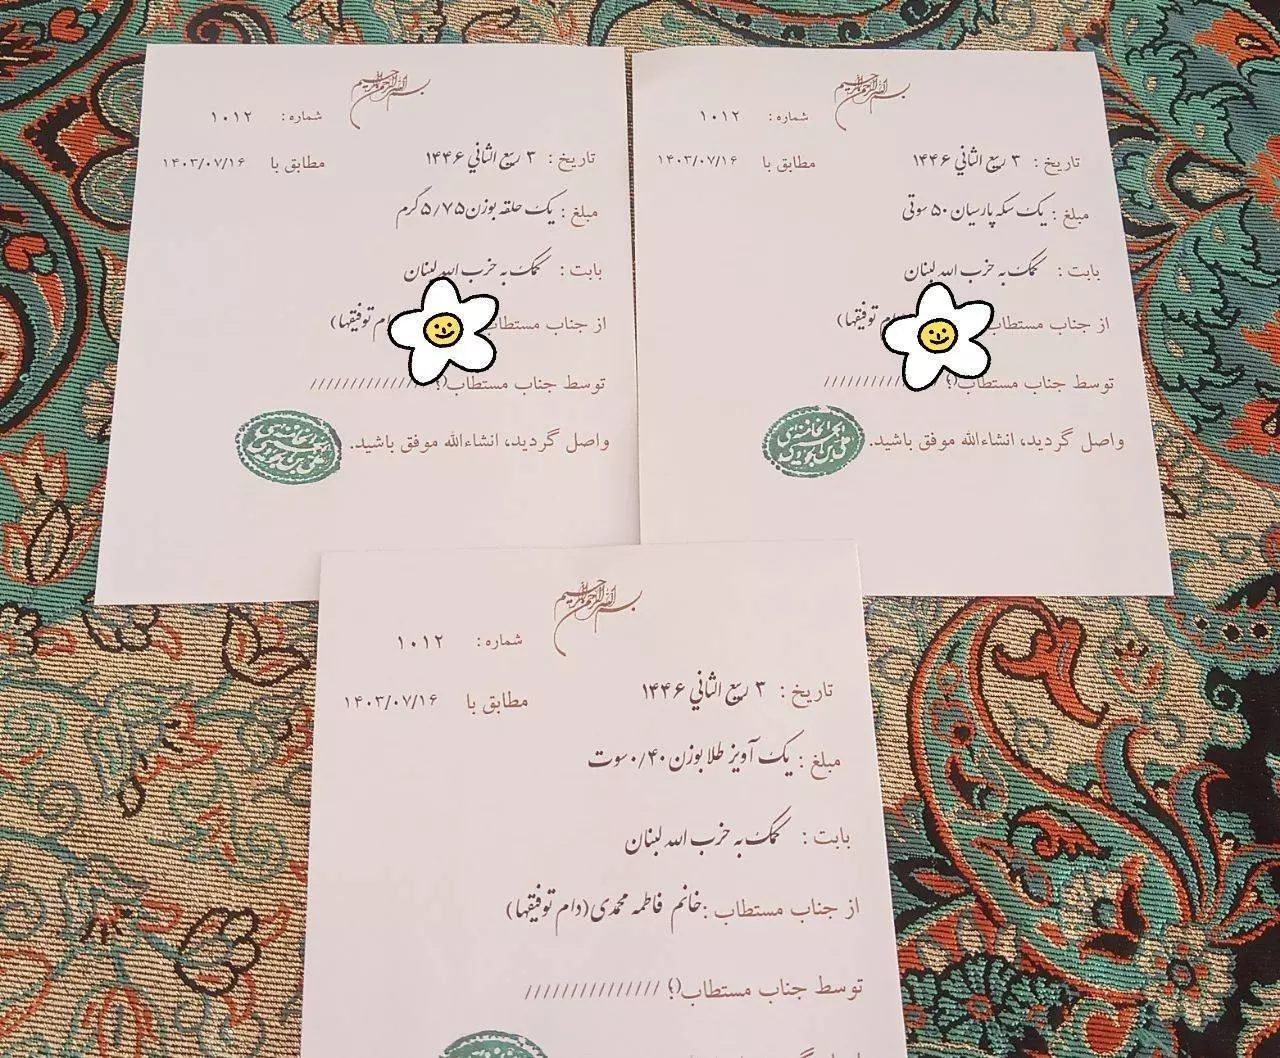 بسم الله الرحمن الرحیم
شماره: ۱۰۱۲
تاریخ: ۳ ربیع الثاني ۱۴۴۶ مطابق با ۱۴۰۳/۰۷/۱۶
مبلغ: یک سکه پارسیان ۵۰ سوتی
بابت: کمک به حزب الله لبنان
از جناب مستطاب توفیقها)
توسط جناب مستطاب(؟ ///////////
واصل گردید، انشاءالله موفق باشید.
بسم الله الرحمن الرحیم
شماره: ۱۰۱۲
تاریخ: ۳ ربیع الثاني ۱۴۴۶ مطابق با ۱۴۰۳/۰۷/۱۶
مبلغ: یک حلقه بوزن ۵/۷۵ گرم
بابت: کمک به حزب الله لبنان
از جناب مستطاب توفیقها)
توسط جناب مستطاب(؟ //////////////
واصل گردید، انشاءالله موفق باشید.
بسم الله الرحمن الرحیم
شماره: ۱۰۱۲
تاریخ: ۳ ربیع الثاني ۱۴۴۶ مطابق با ۱۴۰۳/۰۷/۱۶
مبلغ: یک آویز طلا بوزن ۰/۴۰ سوت
بابت: کمک به حزب الله لبنان
از جناب مستطاب: خانم فاطمه محمدی (دام توفیقها)
توسط جناب مستطاب(؟ ///////////////